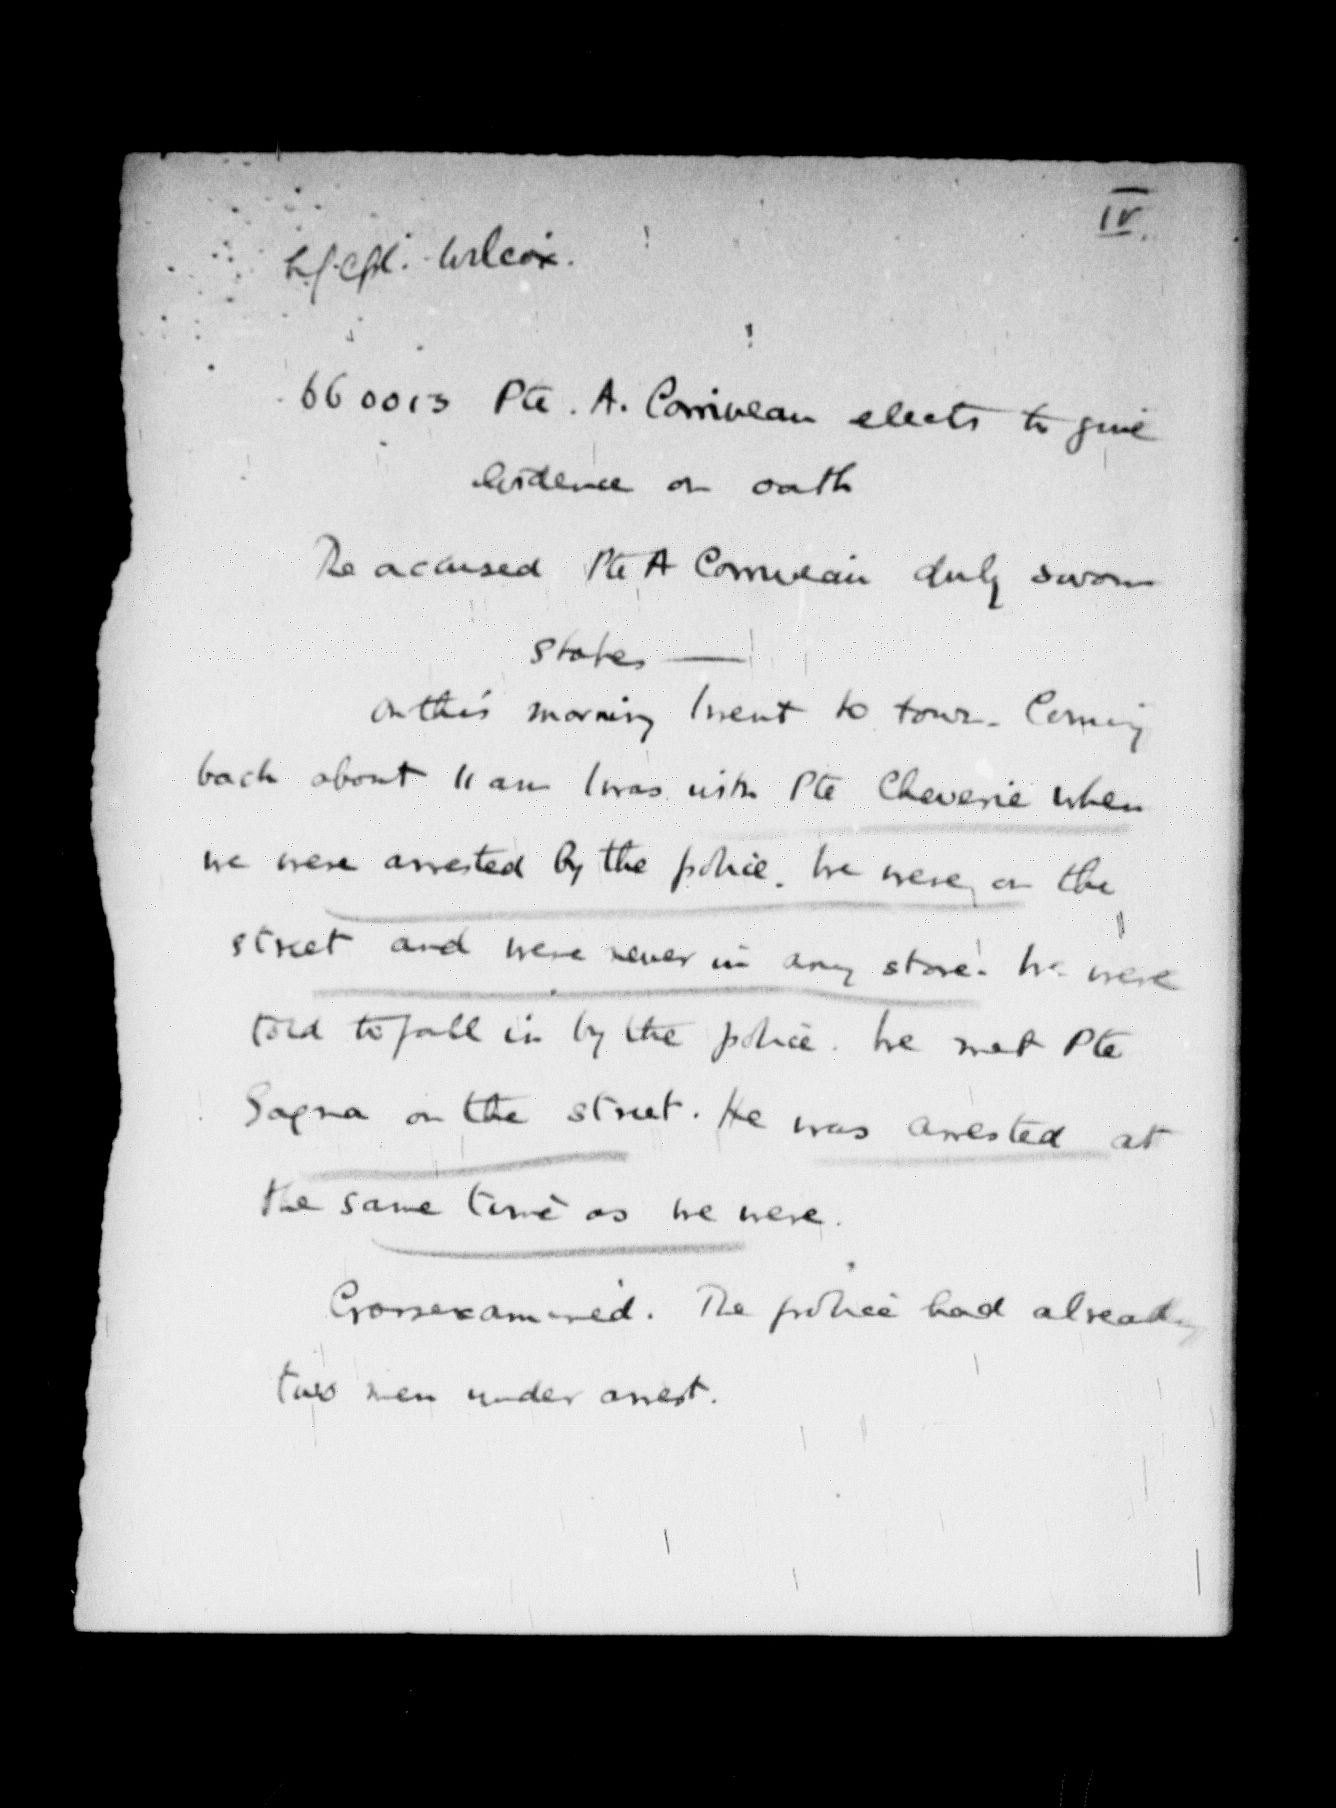 IV.
L/Cpl. Wilcox.
660013 Pte. A. Corriveau elects to give
evidence on oath
The accused Pte A Corriveau duly sworn
states —
On this morning I went to town. Coming
back about 11 am I was with Pte Cheverie when
we were arrested by the police. We were on the
street and were never in any store. We were
told to fall in by the police. We met Pte
Gagna on the street. He was arrested at
the same time as we were.
Crossexamined. The police had already
two men under arrest.